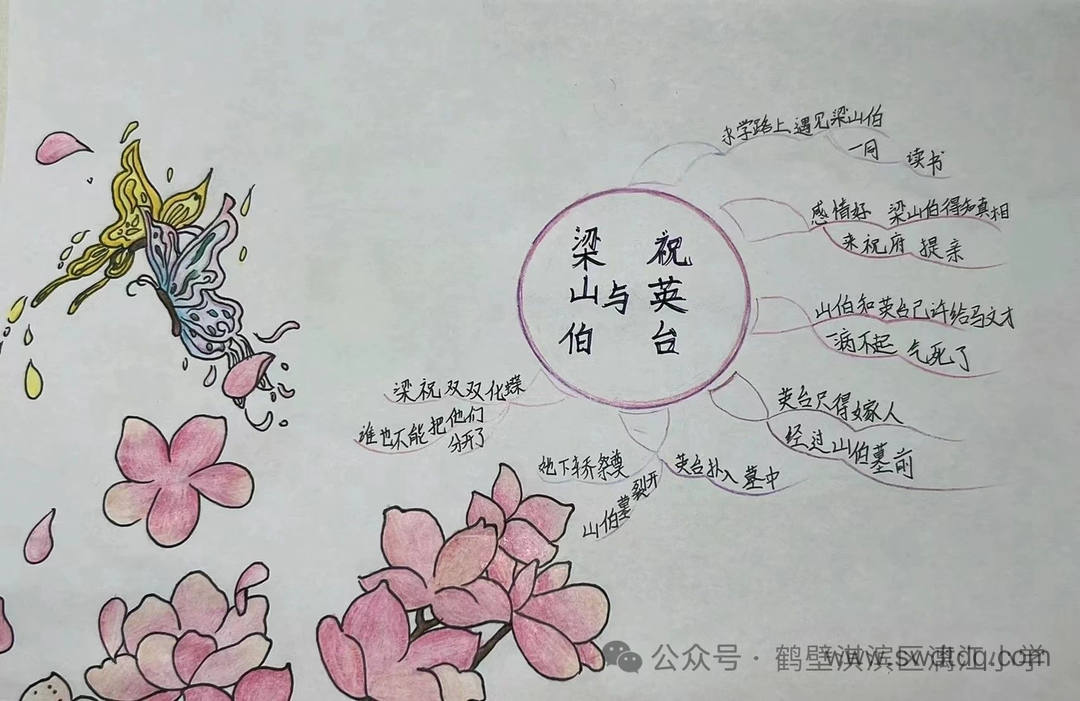 梁山伯
与
祝英台
求学路上遇见梁山伯
一同 读书
感情好 梁山伯得知真相
来祝府 提亲
山伯知英台已许给马文才
一病不起 气死了
英台只得嫁人
经过山伯墓前
她下轿祭奠
山伯墓裂开
英台扑入墓中
梁祝双双化蝶
谁也不能把他们
分开了
公众号 · 鹤壁淇滨区漓江小学